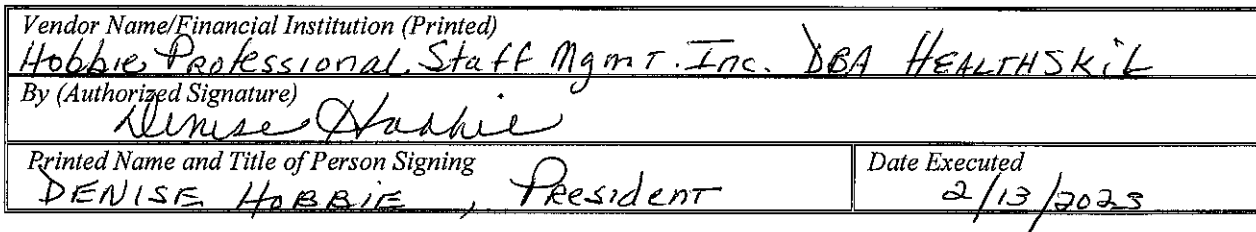 Vendor Name/Financial Institution (Printed)
Hobbie Professional Staff Mgmt. Inc. DBA HEALTHSKIL
By (Authorized Signature)
Denise Hobbie
Printed Name and Title of Person Signing
DENISE HOBBIE, President
Date Executed
2/13/2023